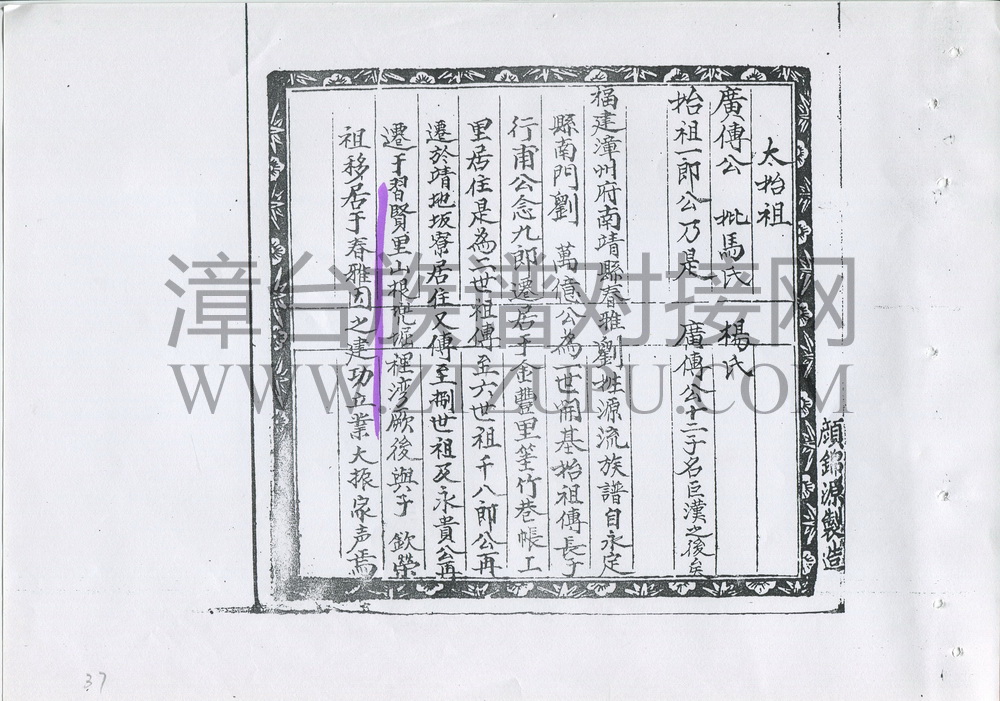 太始祖
廣傳公 妣馬氏 楊氏
始祖一郎公乃是 廣傳公十二子名巨漢之後矣
福建漳州府南靖縣春雅劉姓源流族譜自永定
縣南門劉 萬億公為一世開基始祖傳長子
行甫公念九郎遷居于金豐里筀竹巷帳工
里居住是為二世祖傳至六世祖千八郎公再
遷於靖地坂寮居住又傳至捌世祖及永貴公再
遷于習賢里山根 堀裡湾厥後與子 欽榮
祖移居于春雅因之建功立業大振家声焉
顏錦源製造
漳台族谱对接网
WWW.ZTZUPU.COM
37